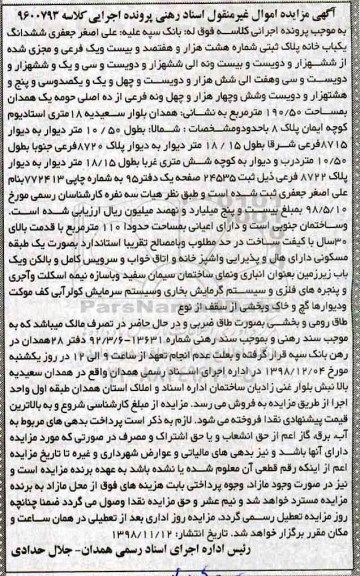 آگهی مزایده اموال غیرمنقول اسناد رهنی پرونده اجرایی کلاسه ۹۶۰۰۷۹۳
به موجب پرونده اجرائی کلاسه فوق له: بانک سپه علیه: علی اصغر جعفری ششدانگ
یکباب خانه پلاک ثبتی شماره هشت هزار و هفتصد و بیست ویک فرعی و مجزی شده
از ششهزار و دویست و بیست ونه الی ششهزار و دویست و سی و یک و ششهزار و
دویست و سی وهفت الی شش هزار و دویست و چهل و یک و یکصدوسی و پنج و
هشتهزار و دویست وشش وچهار هزار و چهل ونه فرعی از ده اصلی حومه یک همدان
بمساحت ۱۹۰/۵۰ مترمربع به نشانی: همدان بلوار سعیدیه ۱۸متری استادیوم
کوچه ایمان پلاک ۸ باحدودومشخصات : شمالا: بطول ۱۰/۵۰ متر دیوار به دیوار
۸۷۱۵فرعی شرقا بطول ۱۸/۱۵ متر دیوار به دیوار پلاک ۸۷۲۰فرعی جنوبا بطول
۱۰/۵۰ متردرب و دیوار به کوچه شش متری غربا بطول ۱۸/۱۵ متر دیوار به دیوار
پلاک ۸۷۲۲ فرعی ذیل ثبت ۲۴۵۳۵ صفحه یک دفتر۹۵ به شماره چاپی ۷۷۲۴۱۳بنام
علی اصغر جعفری ثبت شده است و طبق نظر هیات سه نفره کارشناسان رسمی مورخ
۹۸/۵/۱۰ بمبلغ بیست و پنج میلیارد و نهصد میلیون ریال ارزیابی شده است.
وساختمان جنوبی است و دارای اعیانی بمساحت حدودا ۱۱۰ مترمربع با قدمت بالای
۳۰سال با کیفت ساخت در حد مطلوب وبامصالح تقریبا استاندارد بصورت یک طبقه
مسکونی دارای هال و پذیرایی واشپز خانه و اتاق خواب و سرویس کامل و بالکن ویک
باب زیرزمین بعنوان انباری ونمای ساختمان سیمان سفید وباسازه نیمه اسکلت وآجری
و پنجره های فلزی و سیستم گرمایش بخاری وسیستم سرمایش کولرآبی کف موکت
ودیوارها گچ و خاک وبخشی از سقف از نوع
طاق رومی و بخشی بصورت طاق ضربی و در حال حاضر در تصرف مالک میباشد که به
موجب سند رهنی و بموجب سند رهنی شماره ۱۳۶۳۱-۹۲/۳/۶ دفتر ۲۸همدان در
رهن بانک سپه قرار گرفته و بعلت عدم انجام تعهد از ساعت ۹ الی ۱۲ در روز یکشنبه
مورخ ۱۳۹۸/۱۲/۰۴ در اداره اجرای اسناد رسمی همدان واقع در همدان سعیدیه
بالا نبش بلوار غنی زادیان ساختمان اداره اسناد و املاک استان همدان طبقه اول واحد
اجرا از طریق مزایده به فروش می رسد. مزایده از مبلغ کارشناسی شروع و به بالاترین
قیمت پیشنهادی نقدا فروخته می شود. لازم به ذکر است پرداخت بدهی های مربوط به
آب، برق، گاز اعم از حق انشعاب و یا حق اشتراک و مصرف در صورتی که مورد مزایده
دارای آنها باشد و نیز بدهی های مالیاتی و عوارض شهرداری و غیره تا تاریخ مزایده
اعم از اینکه رقم قطعی آن معلوم شده یا نشده باشد به عهده برنده مزایده است و
نیز در صورت وجود مازاد، وجوه پرداختی بابت هزینه های فوق از محل مازاد به برنده
مزایده مسترد خواهد شد و نیم عشر و حق مزایده نقدا وصول می گردد ضمنا چنانچه
روز مزایده تعطیل رسمی گردد، مزایده روز اداری بعد از تعطیلی در همان ساعت و
مکان مقرر برگزار خواهد شد. تاریخ انتشار: ۱۳۹۸/۱۱/۱۲
رئیس اداره اجرای اسناد رسمی همدان- جلال حدادی